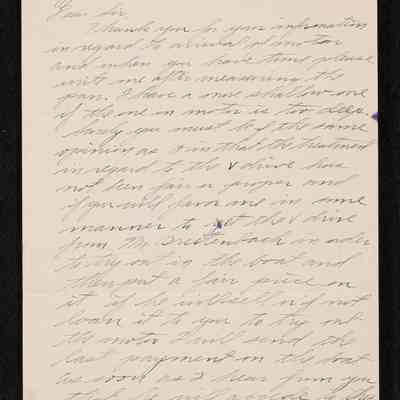 Dear Sir
Thank you for your information
in regard to arrival of motor
and when you have time please
write me after measuring the
pan. I have a more shallow one
if the one in motor is too deep.
Surely you must be of the same
opinion as I in that the treatment
in regard to the V drive has
not been fair or proper and
if you will favor me in some
manner to get the V drive
from Mr. in order
to try out in the boat and
then put a fair price on
it if he will sell or if not
loan it to you to try out
the motor I will send the
last payment on the boat
as soon as I hear from you
that he will